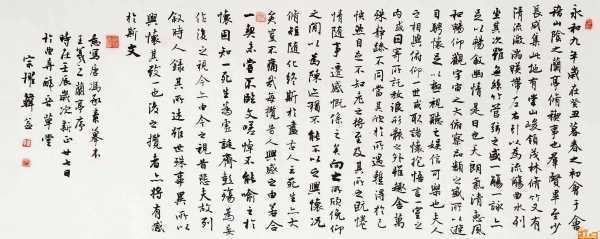 永和九年歲在癸丑暮春之初會于會
稽山陰之蘭亭脩禊事也羣賢畢至少
長咸集此地有崇山峻領茂林脩竹又有
清流激湍暎帶左右引以為流觴曲水列
坐其次雖無絲竹管弦之盛一觴一詠亦
足以暢敘幽情是日也天朗氣清惠風
和暢仰觀宇宙之大俯察品類之盛所以遊
目騁懷足以極視聽之娛信可樂也夫人
之相與俯仰一世或取諸懷抱悟言一室之
內或因寄所託放浪形骸之外雖趣舍萬
殊靜躁不同當其欣於所遇暫得於己
怏然自足不知老之將至及其所之既惓
情隨事遷感慨係之矣向之所欣俛仰
之閒以為陳迹猶不能不以之興懷況
脩短隨化終期於盡古人云死生亦大
矣豈不痛哉每攬昔人興感之由若合
一契未嘗不臨文嗟悼不能喻之於
懷固知一死生為虛誕齊彭殤為妄
作後之視今亦由今之視昔悲夫故列
敘時人錄其所述雖世殊事異所以
興懷其致一也後之攬者亦將有感
於斯文
意寫唐馮承素摹本
王羲之蘭亭序
時在壬辰歲次新正廿七日
草堂
宗耀